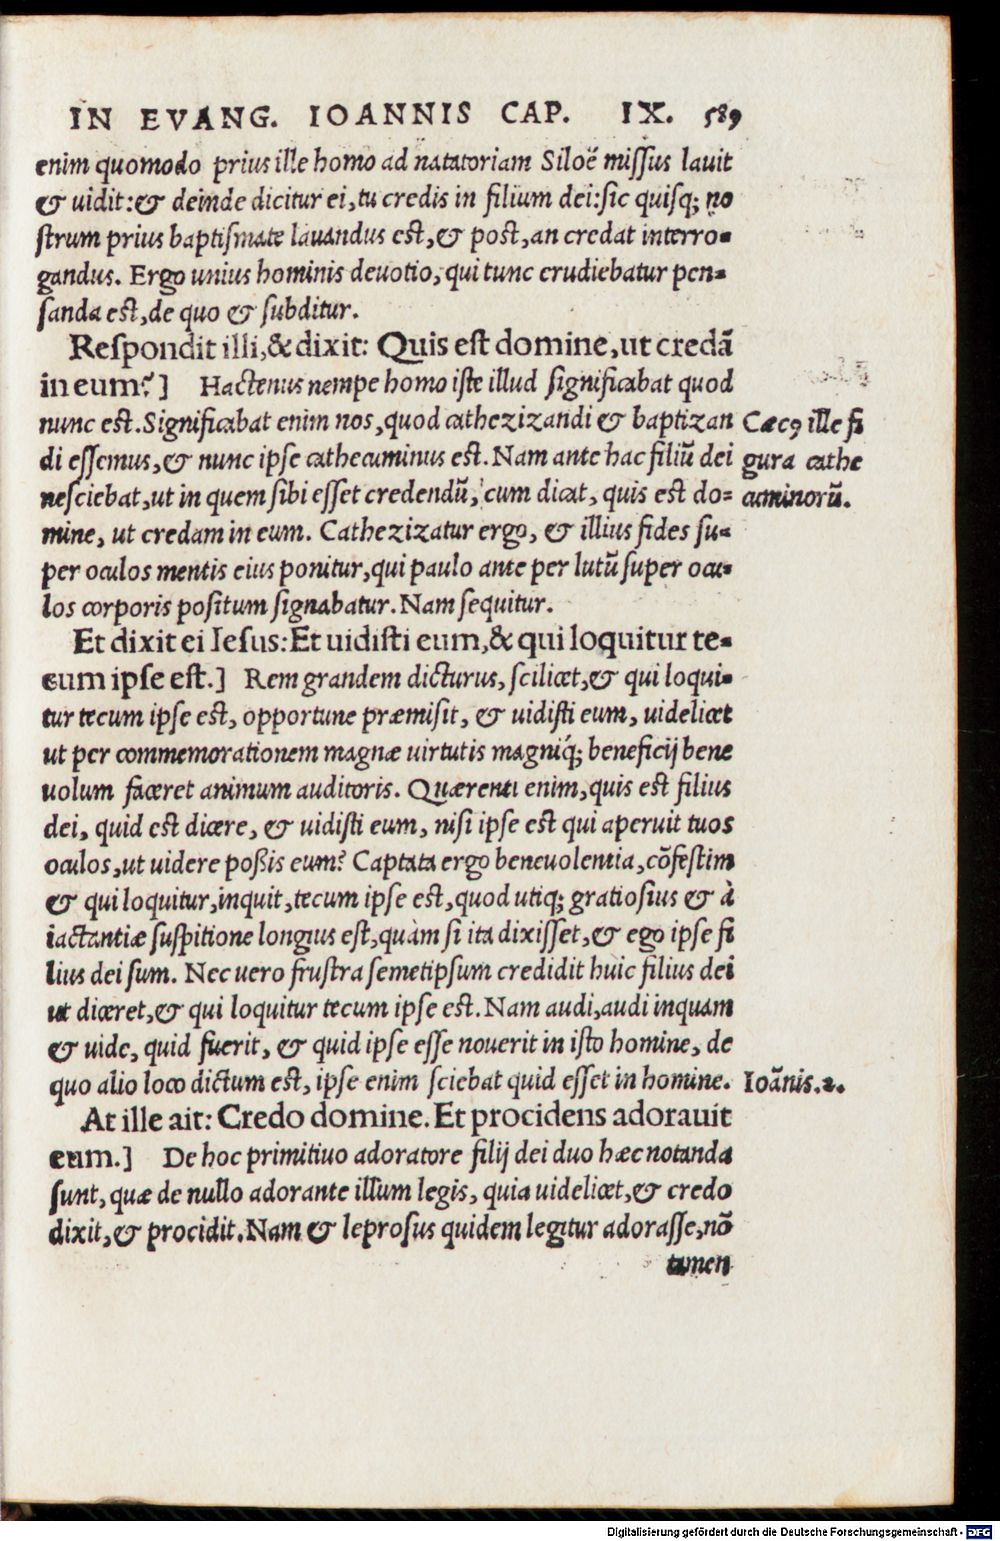 IN EVANG. IOANNIS CAP. IX. 589
enim quomodo prius ille homo ad natatoriam Siloë missus lauit
& uidit:& deinde dicitur ei,tu credis in filium dei:sic quisq; no
strum prius baptismate lauandus est,& post,an credat interro-
gandus. Ergo unius hominis deuotio,qui tunc erudiebatur pen-
sanda est,de quo & subditur.
Respondit illi,& dixit: Quis est domine,ut credã
in eum?] Hactenus nempe homo iste illud significabat quod
nunc est.Significabat enim nos,quod cathezizandi & baptizan
di essemus,& nunc ipse cathecuminus est.Nam ante hac filiũ dei
nesciebat,ut in quem sibi esset credendũ, cum dicat, quis est do-
mine, ut credam in eum. Cathezizatur ergo, & illius fides su-
per oculos mentis eius ponitur,qui paulo ante per lutũ super ocu-
los corporis positum signabatur.Nam sequitur.
Cæcꝰ ille fi
gura cathe
cuminorũ.
Et dixit ei Iesus:Et uidisti eum,& qui loquitur te-
cum ipse est.] Rem grandem dicturus, scilicet,& qui loqui-
tur tecum ipse est, opportune præmisit, & uidisti eum, uidelicet
ut per commemorationem magnæ uirtutis magniq́; beneficij bene
uolum faceret animum auditoris. Quærenti enim,quis est filius
dei, quid est dicere, & uidisti eum, nisi ipse est qui aperuit tuos
oculos,ut uidere poßis eum? Captata ergo beneuolentia,cõfestim
& qui loquitur,inquit,tecum ipse est,quod utiq; gratiosius & à
iactantiæ suspitione longius est,quàm si ita dixisset,& ego ipse fi
lius dei sum. Nec uero frustra semetipsum credidit huic filius dei
ut diceret,& qui loquitur tecum ipse est.Nam audi,audi inquam
& uide, quid fuerit, & quid ipse esse nouerit in isto homine, de
quo alio loco dictum est, ipse enim sciebat quid esset in homine.
Ioãnis.2.
At ille ait: Credo domine.Et procidens adorauit
eum.] De hoc primitiuo adoratore filij dei duo hæc notanda
sunt, quæ de nullo adorante illum legis, quia uidelicet,& credo
dixit,& procidit.Nam & leprosus quidem legitur adorasse,nõ
tamen
Digitalisierung gefördert durch die Deutsche Forschungsgemeinschaft - DFG